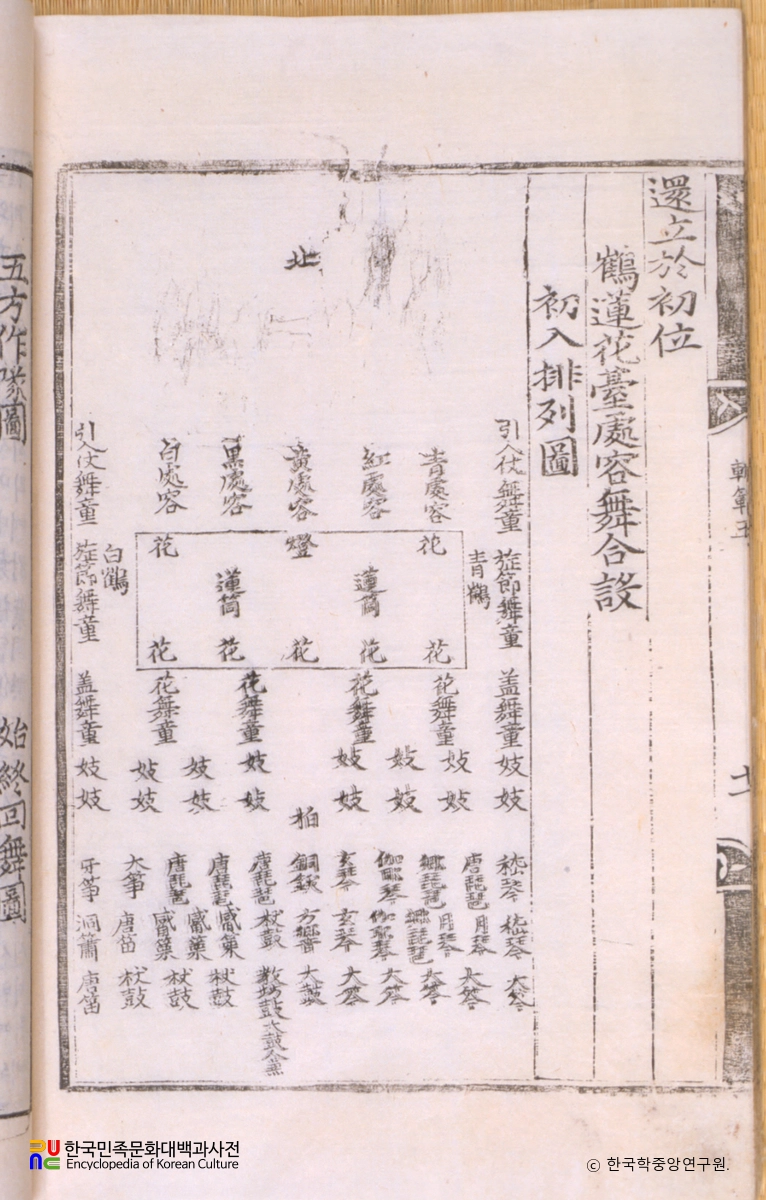 還立於初位
鶴蓮花臺處容舞合設
初入排列圖
北
引人仗舞童
青處容
紅處容
黃處容
黑處容
白處容
引人仗舞童
旌節舞童
青鶴
花
燈
花
白鶴
旌節舞童
蓮筒
蓮筒
花
花
花
花
花
盖舞童
花舞童
花舞童
花舞童
花舞童
盖舞童
妓 妓 妓 妓 妓 妓 妓 妓
妓 妓 妓 妓 妓 妓 妓 妓
拍
嵇琴 唐琵琶 鄕琵琶 伽耶琴 玄琴 銅鈸 唐琵琶 唐琵琶 唐琵琶 大箏 牙箏
嵇琴 月琴 月琴 鄕琵琶 伽耶琴 玄琴 方響 杖鼓 觱篥 觱篥 觱篥 唐笛 洞簫
大笒 大笒 大笒 大笒 大笒 教坊鼓 杖鼓 杖鼓 杖鼓 唐笛
軌範五
五方作隊圖
始終回舞圖
한국민족문화대백과사전
Encyclopedia of Korean Culture
© 한국학중앙연구원.